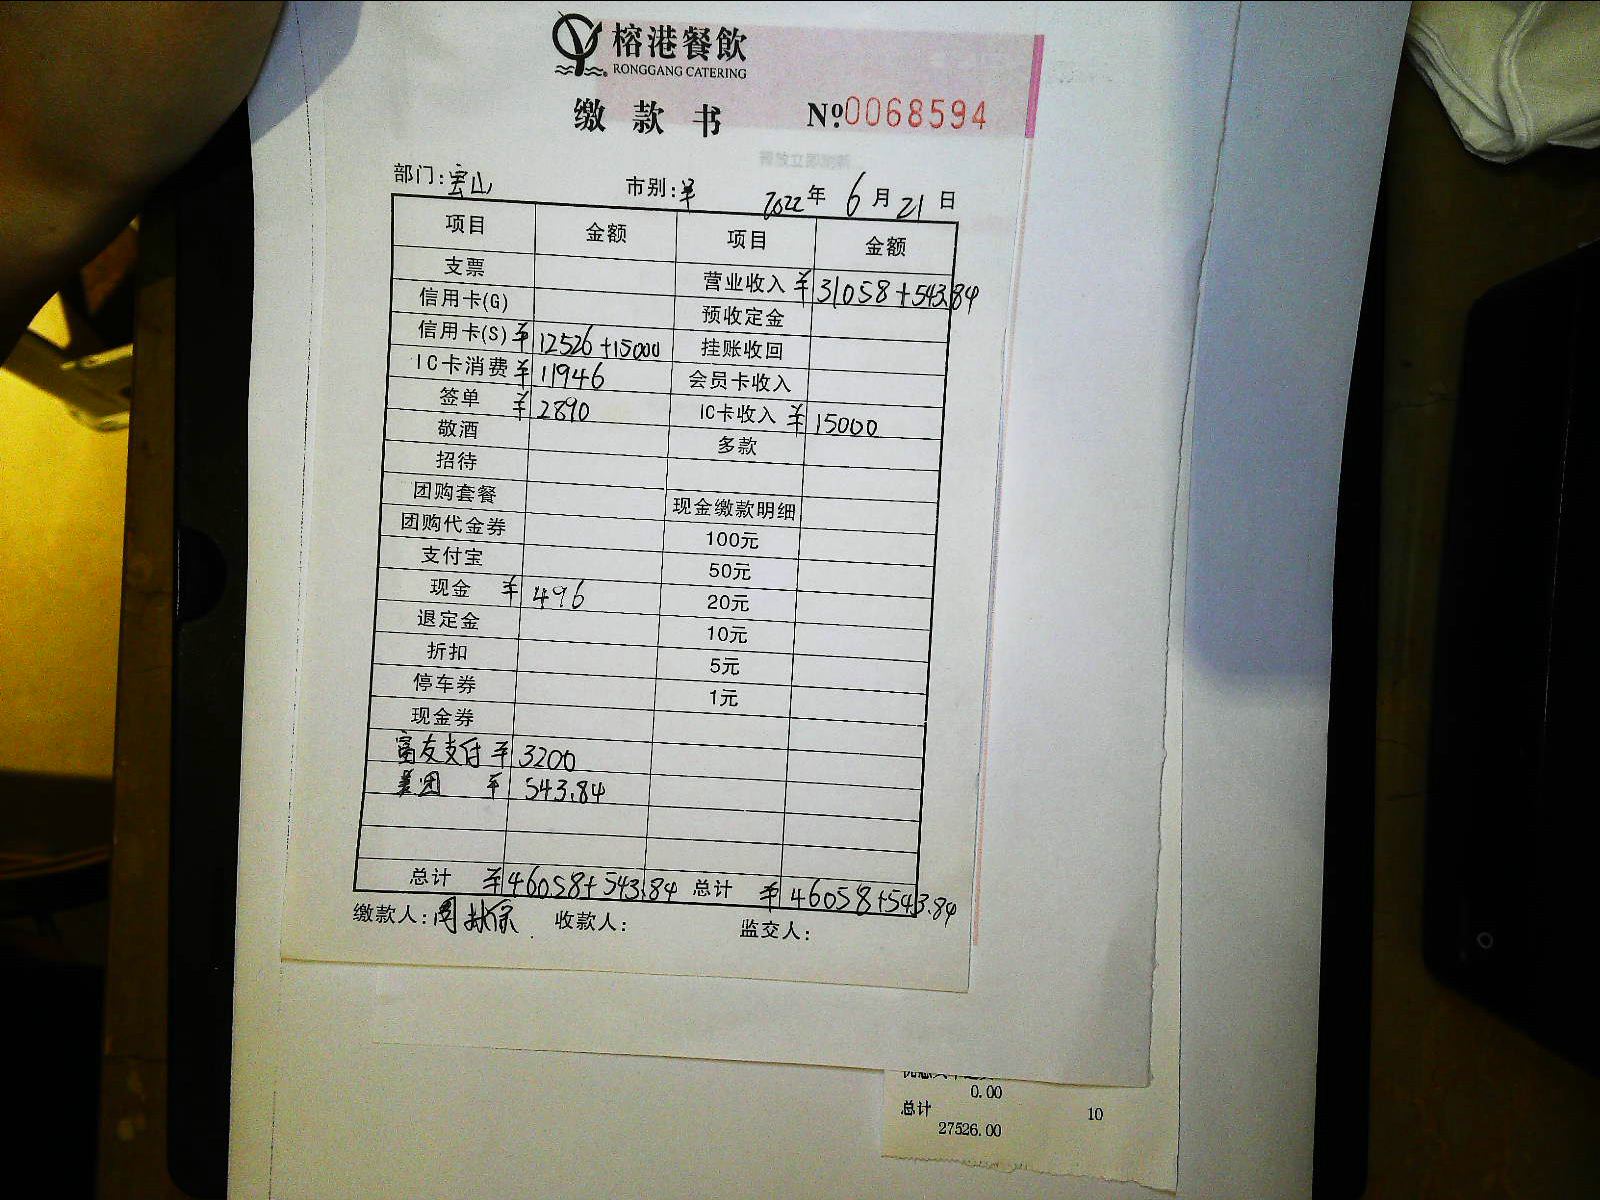 榕港餐飲
RONGGANG CATERING
缴款书 №0068594
部门:雲山 市别: 2022年 6月21日
项目 金额 项目 金额
支票 营业收入 ¥31058+543.84
信用卡(G) 预收定金
信用卡(S) ¥12526+15000 挂账收回
IC卡消费 ¥11946 会员卡收入
签单 ¥2890 IC卡收入 ¥15000
敬酒 多款
招待
团购套餐 现金缴款明细
团购代金券 100元
支付宝 50元
现金 ¥496 20元
退定金 10元
折扣 5元
停车券 1元
现金券
富友支付 ¥3200
美团 ¥543.84
总计 ¥46058+543.84 总计 ¥46058+543.84
缴款人:周 收款人: 监交人:
0.00
总计 10
27526.00